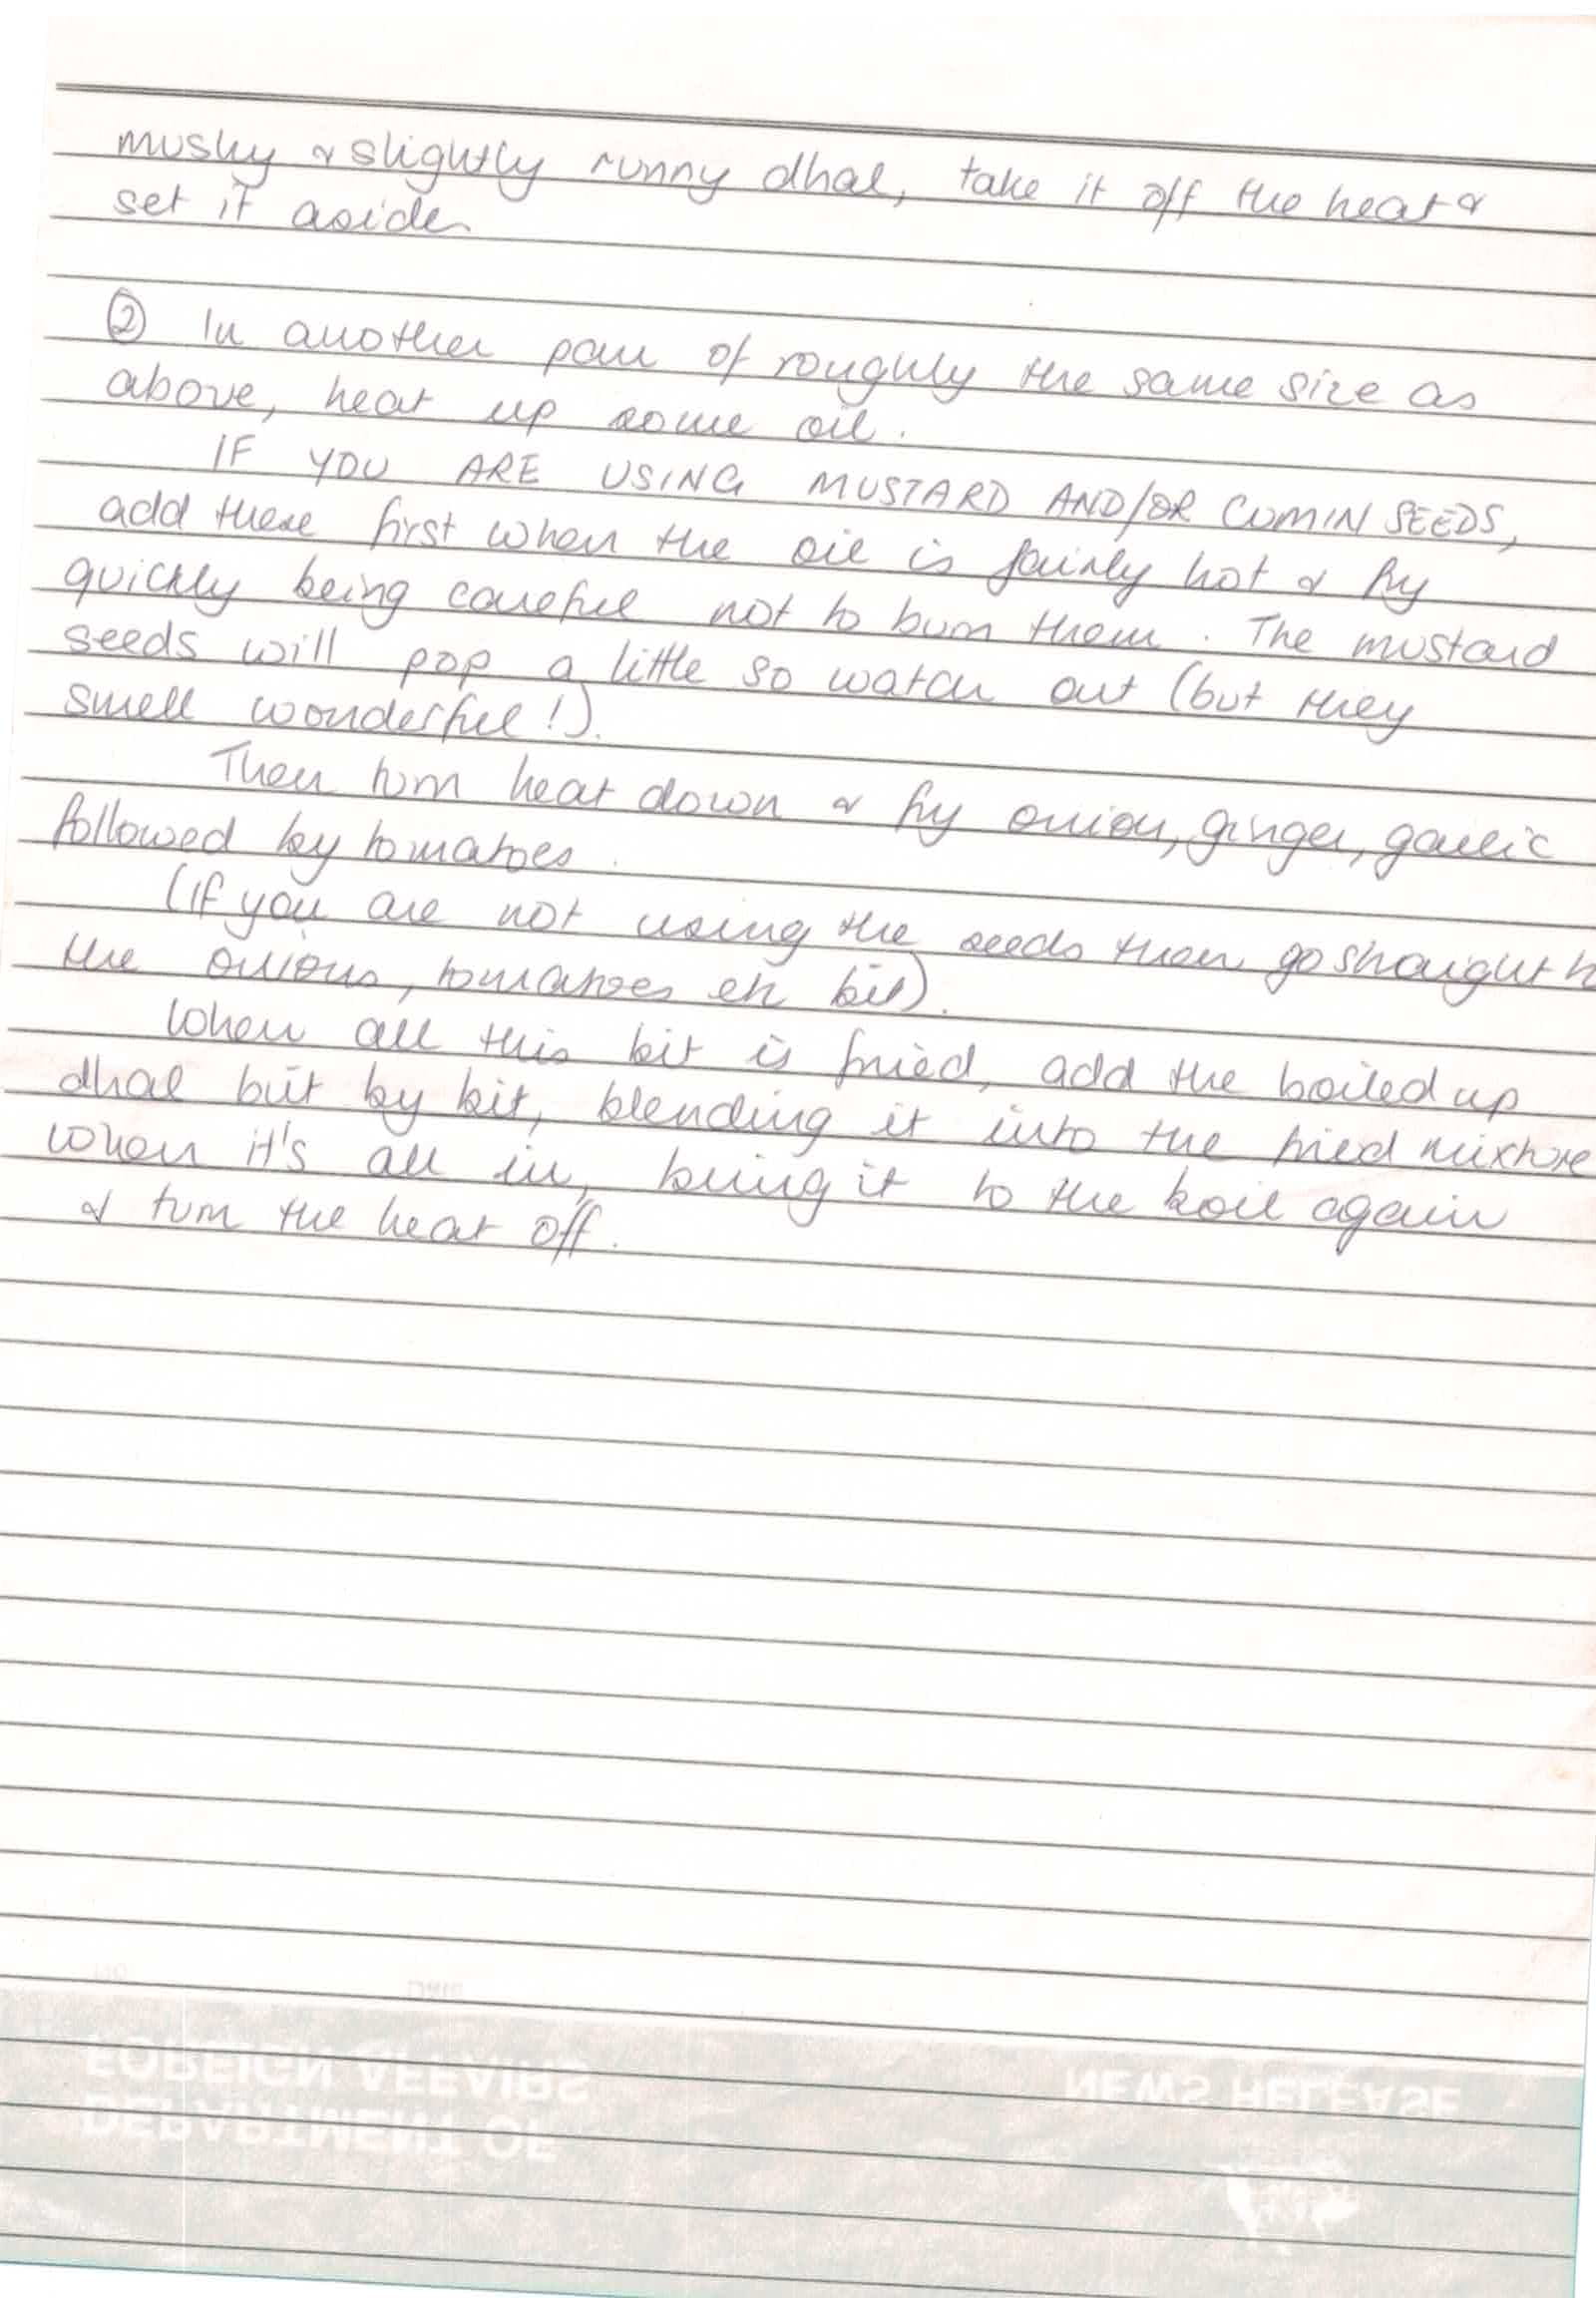 mushy & slightly runny dhal, take it off the heat &
set it aside.
② In another pan of roughly the same size as
above, heat up some oil.
IF YOU ARE USING MUSTARD AND/OR CUMIN SEEDS,
add these first when the oil is fairly hot & fry
quickly being careful not to burn them. The mustard
seeds will pop a little so watch out (but they
smell wonderful!).
Then turn heat down & fry onion, ginger, garlic
followed by tomatoes.
(If you are not using the seeds then go straight to
the onions, tomatoes etc bit).
When all this bit is fried, add the boiled up
dhal bit by bit, blending it into the fried mixture
When it's all in, bring it to the boil again
& turn the heat off.
FOREIGN AFFAIRS
NEWS RELEASE
DEPARTMENT OF